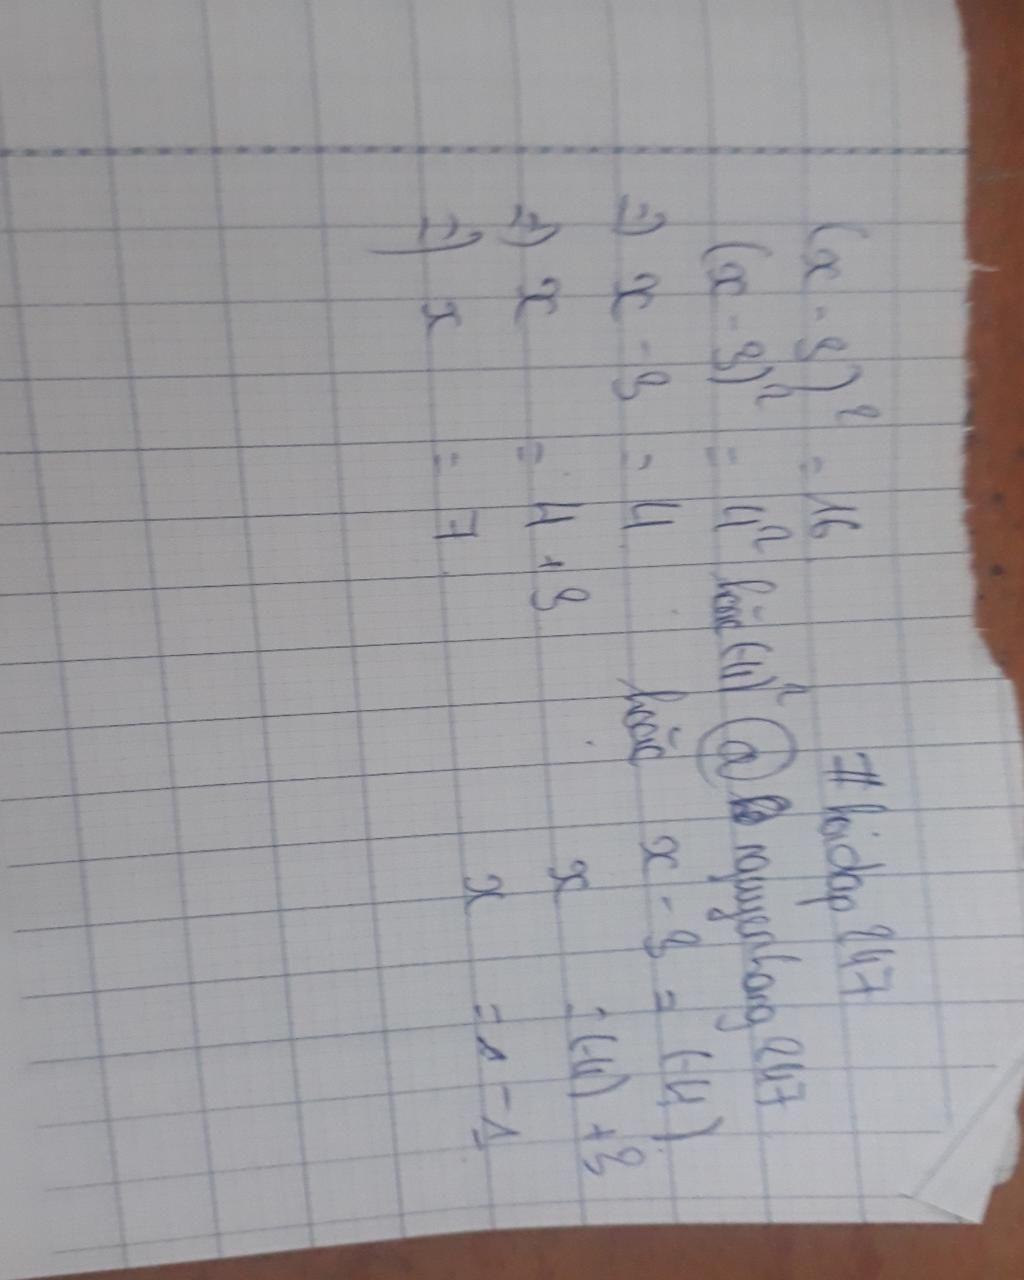 (x - 3)² = 16 # hoidap247
(x - 3)² = 4² hoặc (-4)² @ nguyenhang247
=) x - 3 = 4 hoặc x - 3 = (-4)
=) x = 4 + 3 x = (-4) + 3
=) x = 7 x = -1